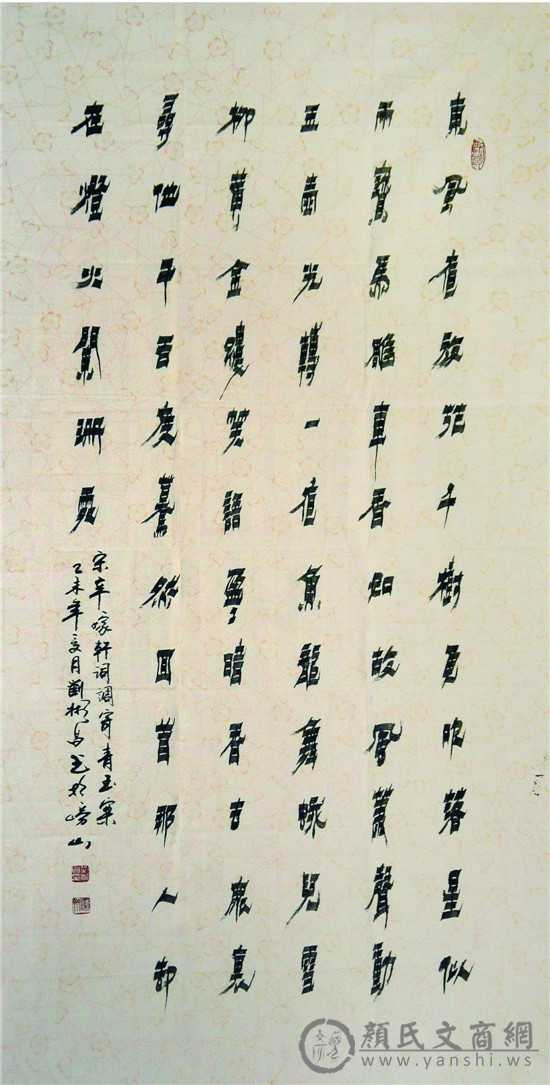 東風夜放花千樹更吹落星似
雨寶馬雕車香如故鳳簫聲動
玉壺光轉一夜魚龍舞蛾兒雪
柳黃金縷笑語盈々暗香去衆裏
尋他千百度驀然回首那人卻
在燈火闌珊處
宋辛稼軒詞調寄青玉案
乙未年夏月劉彬昌書於嶗山
顏氏文商網
www.yanshi.ws